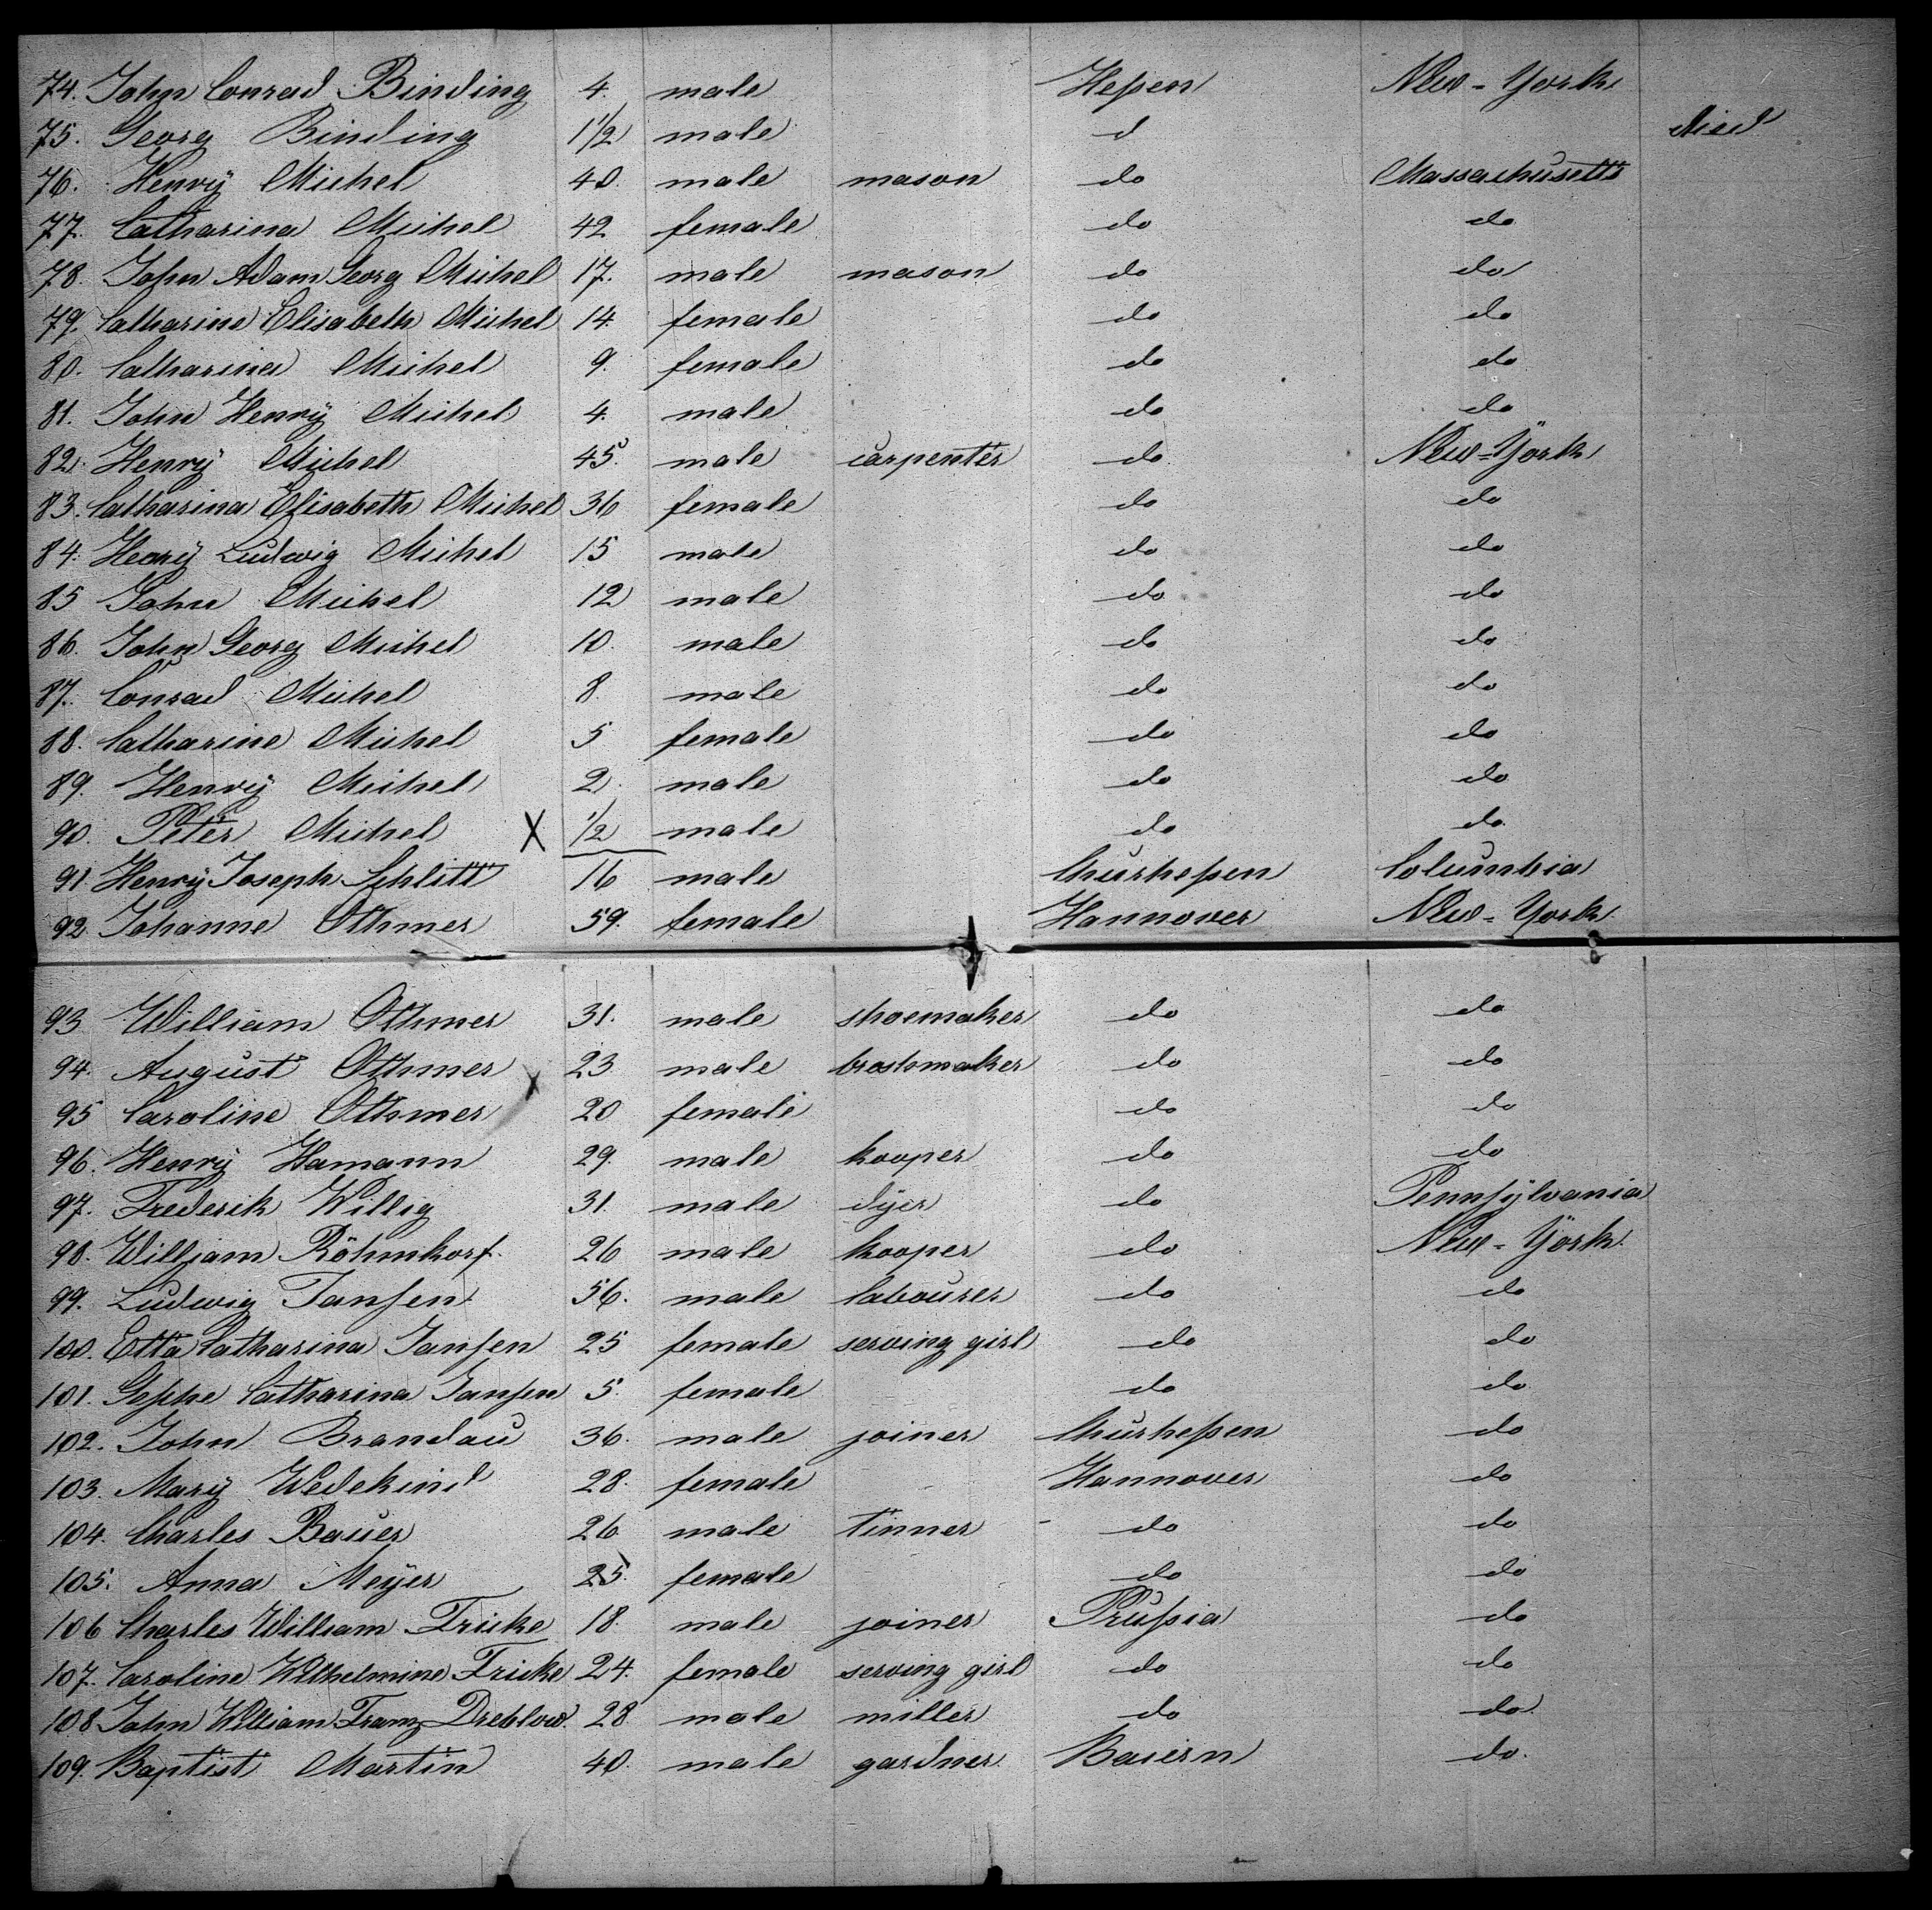 74. John Conrad Binding 4. male Heſsen New-York
75. Georg Binding 1 1/2 male d died
76. Henrÿ Michel 40. male mason do Massachusetts
77. Catharina Michel 42 female do do
78. John Adam Georg Michel 17. male mason do do
79. Catharine Elisabeth Michel 14. female do do
80. Catharina Michel 9. female do do
81. John Henrÿ Michel 4. male do do
82. Henrÿ Michel 45. male carpenter do New-York
83. Catharina Elisabeth Michel 36 female do do
84. Henrÿ Ludwig Michel 15 male do do
85 John Michel 12 male do do
86. John Georg Michel 10. male do do
87. Conrad Michel 8. male do do
88. Catharine Michel 5 female do do
89. Henrÿ Michel 2. male do do
90. Peter Michel X 1/2 male do do
91 Henrÿ Joseph Schlitt 16 male Churheſsen Columbia
92. Johanne Othmer 59. female Hannover New-York
93 William Othmer 31. male shoemaker do do
94. August Othmer X 23 male do do
95 Caroline Othmer 20 female do do
96. Henrÿ Hamann 29. male kooper do do
97. Frederik Willig 31. male dÿer do Pennſÿlvania
98. William Röhmkorf 26 male kooper do New-York
99. Ludwig Janſen 56. male labourer do do
100. Etta Catharina Janſen 25 female serving girl do do
101. Catharina Janſen 5. female do do
102. John Brandau 36. male joiner Churheſsen do
103. Marÿ Wedekind 28. female Hannover do
104. Charles Bauer 26 male tinner do do
105. Anna Meÿer 25. female do do
106 Charles William Fricke 18. male joiner Pruſsia do
107. Caroline Wilhelmine Fricke 24. female serving girl do do
108 John William Franz Dreblow 28 male miller do do
109. Baptist Martin 40. male gardner Baiern do.